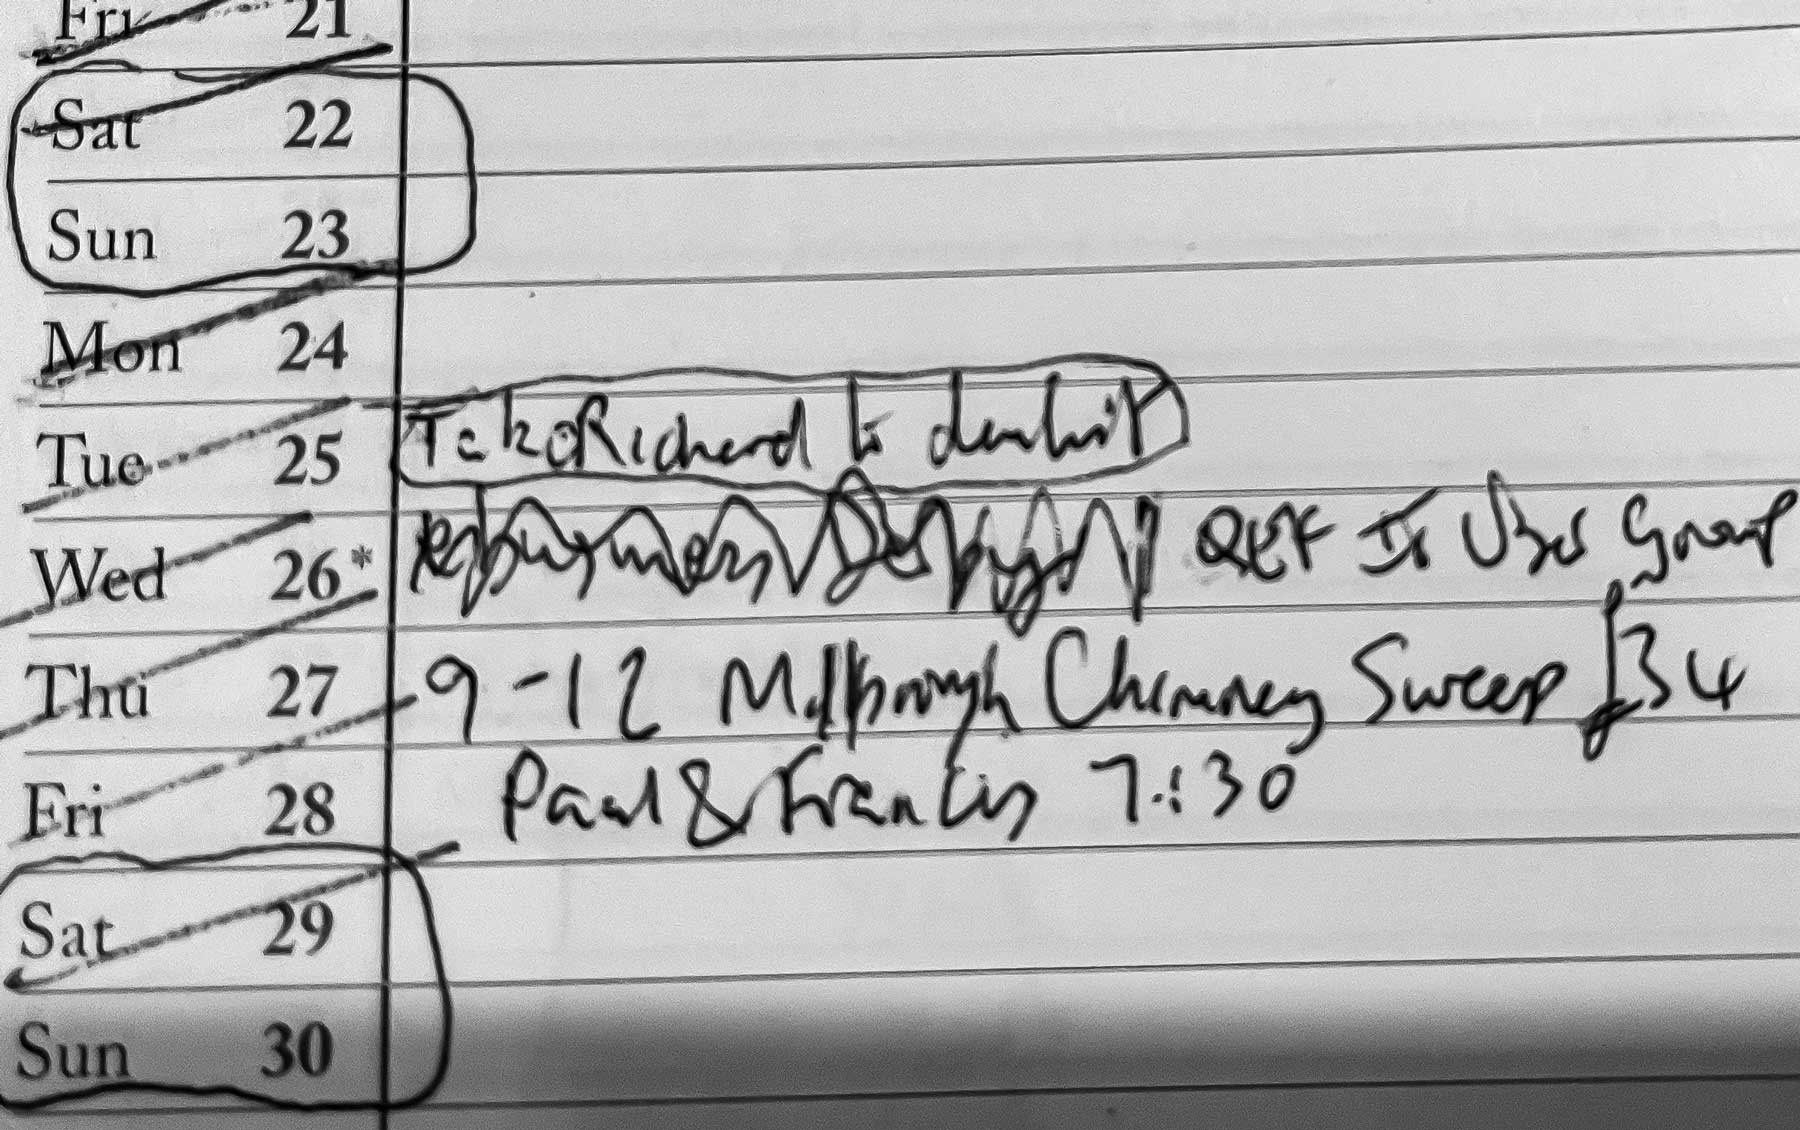 Fri 21
Sat 22
Sun 23
Mon 24
Tue 25 Take Richard to dentist
Wed 26* QEF User Group
Thu 27 9-12 Millbrough Chimney Sweep £34
Fri 28 Paul & Francis 7:30
Sat 29
Sun 30